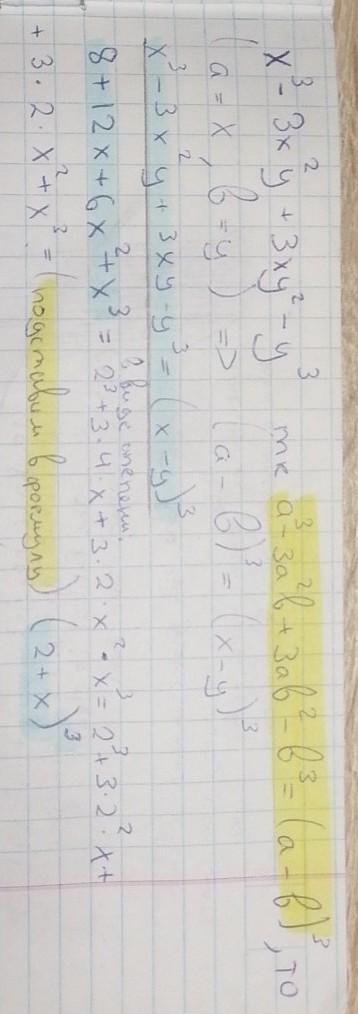 x³ - 3x²y + 3xy² - y³ тк a³ - 3a²b + 3ab² - b³ = (a - b)³, то
(a = x, b = y) => (a - b)³ = (x - y)³
x³ - 3x²y + 3xy - y³ = (x - y)³
в виде степени.
8 + 12x + 6x² + x³ = 2³ + 3·4·x + 3·2·x² · x³ = 2³ + 3·2²·x +
+ 3·2·x² + x³ = (подставим в формулу) (2 + x)³